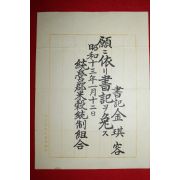 書記 金琪容
願ニ依リ書記ヲ免ス
昭和十三年一月十二日
統營郡米穀統制組合